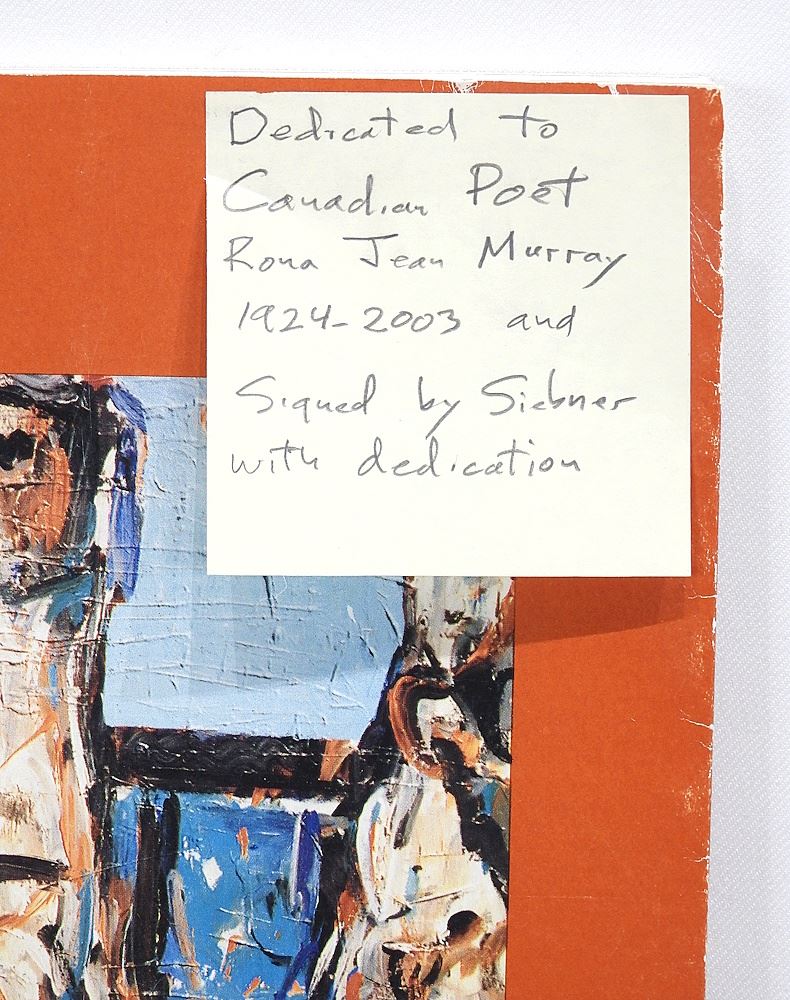 Dedicated to
Canadian Poet
Rona Jean Murray
1924-2003 and
Signed by Siebner
with dedication